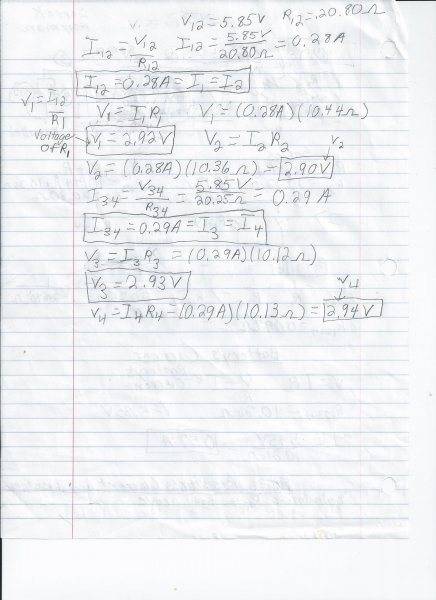 V12 = 5.85V R12 = 20.80Ω
I12 = V12/R12 I12 = 5.85V/20.80Ω = 0.28A
I12 = 0.28A = I1 = I2
V1 = I12/R1
V1 = I1R1 V1 = (0.28A)(10.44Ω)
Voltage of R1
V1 = 2.92V V2 = I2R2
V2
V2 = (0.28A)(10.36Ω) = 2.90V
I34 = V34/R34 = 5.85V/20.25Ω = 0.29A
I34 = 0.29A = I3 = I4
V3 = I3R3 = (0.29A)(10.12Ω)
V3 = 2.93V
V4
V4 = I4R4 = (0.29A)(10.13Ω) = 2.94V